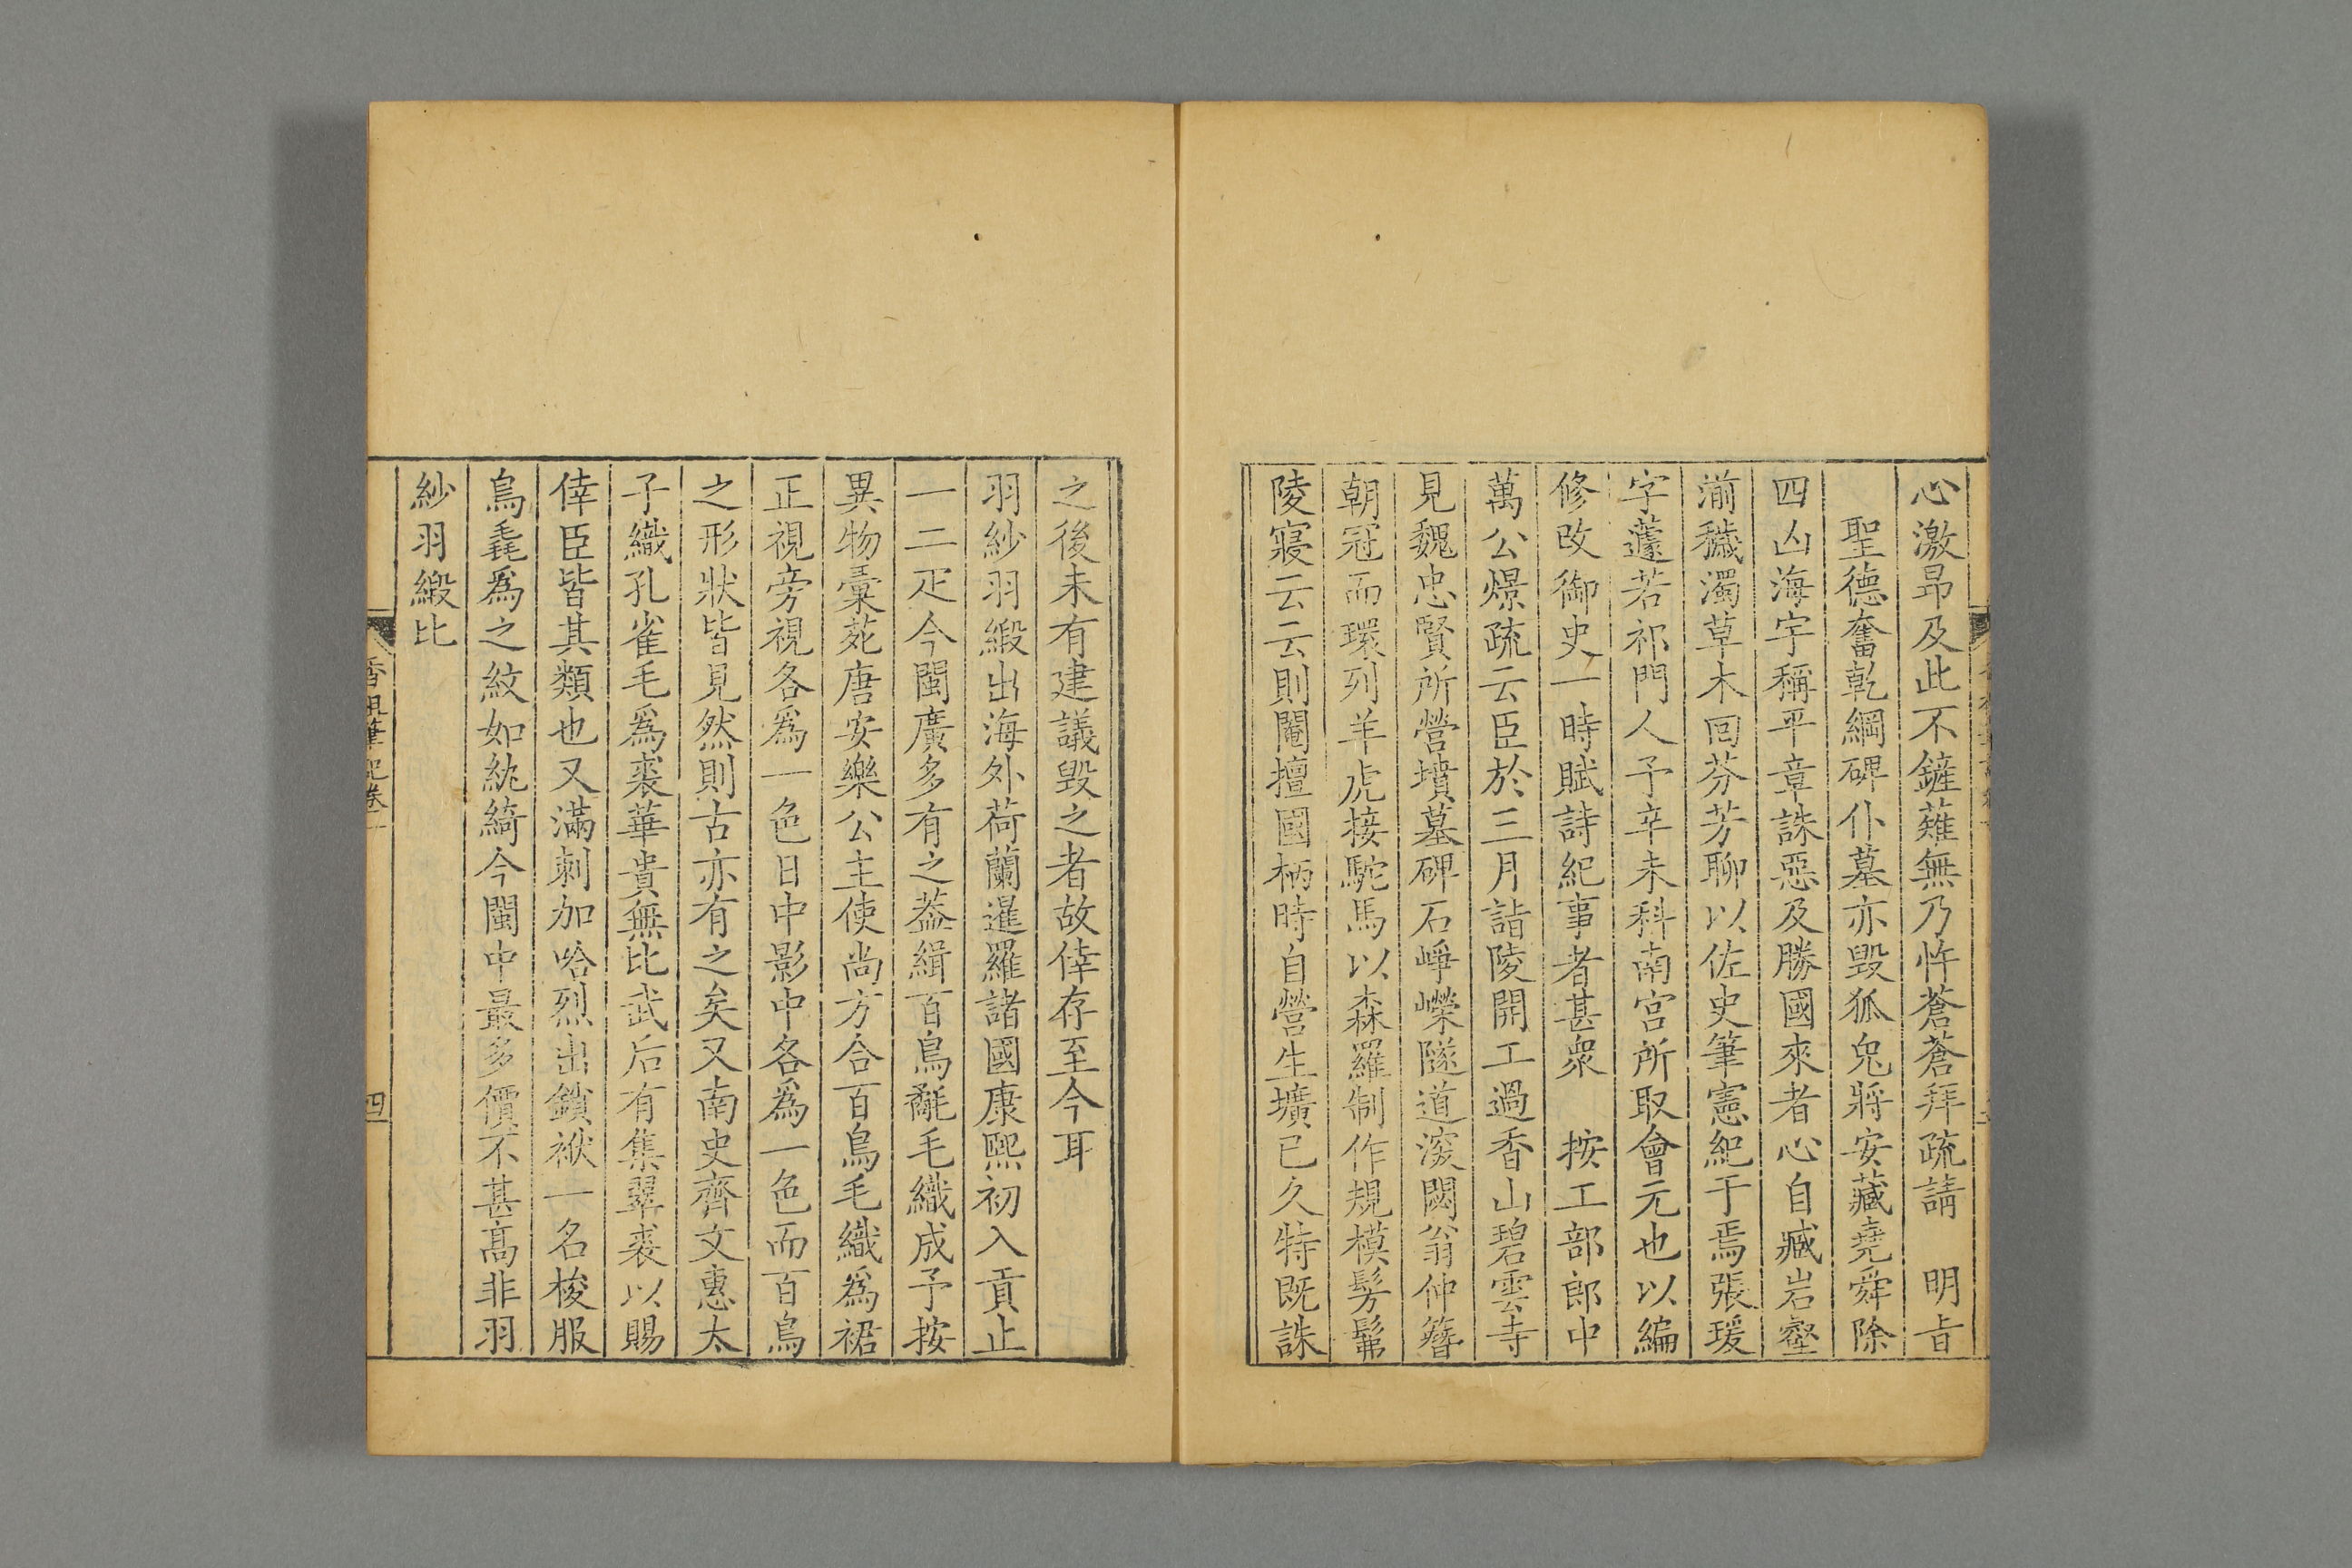 心激昂及此不鏟薙無乃忤蒼蒼拜疏請　明旨
聖德奮乾綱碑仆墓亦毀狐兔將安藏堯舜除
四凶海宇稱平章誅惡及勝國來者心自臧岩壑
湔穢濁草木回芬芳聊以佐史筆憲紀于焉張瑗
字蘧若祁門人予辛未科南宮所取會元也以編
修改御史一時賦詩紀事者甚衆　按工部郎中
萬公燝疏云臣於三月詣陵開工過香山碧雲寺
見魏忠賢所營墳墓碑石崢嶸隧道深闊翁仲簪
朝冠而環列羊虎接駝馬以森羅制作規模髣髴
陵寢云云則閹擅國柄時自營生壙已久特既誅
之後未有建議毀之者故倖存至今耳
羽紗羽緞出海外荷蘭暹羅諸國康熙初入貢止
一二疋今閩廣多有之葢緝百鳥毳毛織成予按
異物彙苑唐安樂公主使尚方合百鳥毛織爲裙
正視旁視各爲一色日中影中各爲一色而百鳥
之形狀皆見然則古亦有之矣又南史齊文惠太
子織孔雀毛爲裘華貴無比武后有集翠裘以賜
倖臣皆其類也又滿刺加哈烈出鎖袱一名梭服
鳥毳爲之紋如紈綺今閩中最多價不甚高非羽
紗羽緞比
香祖筆記卷一
四